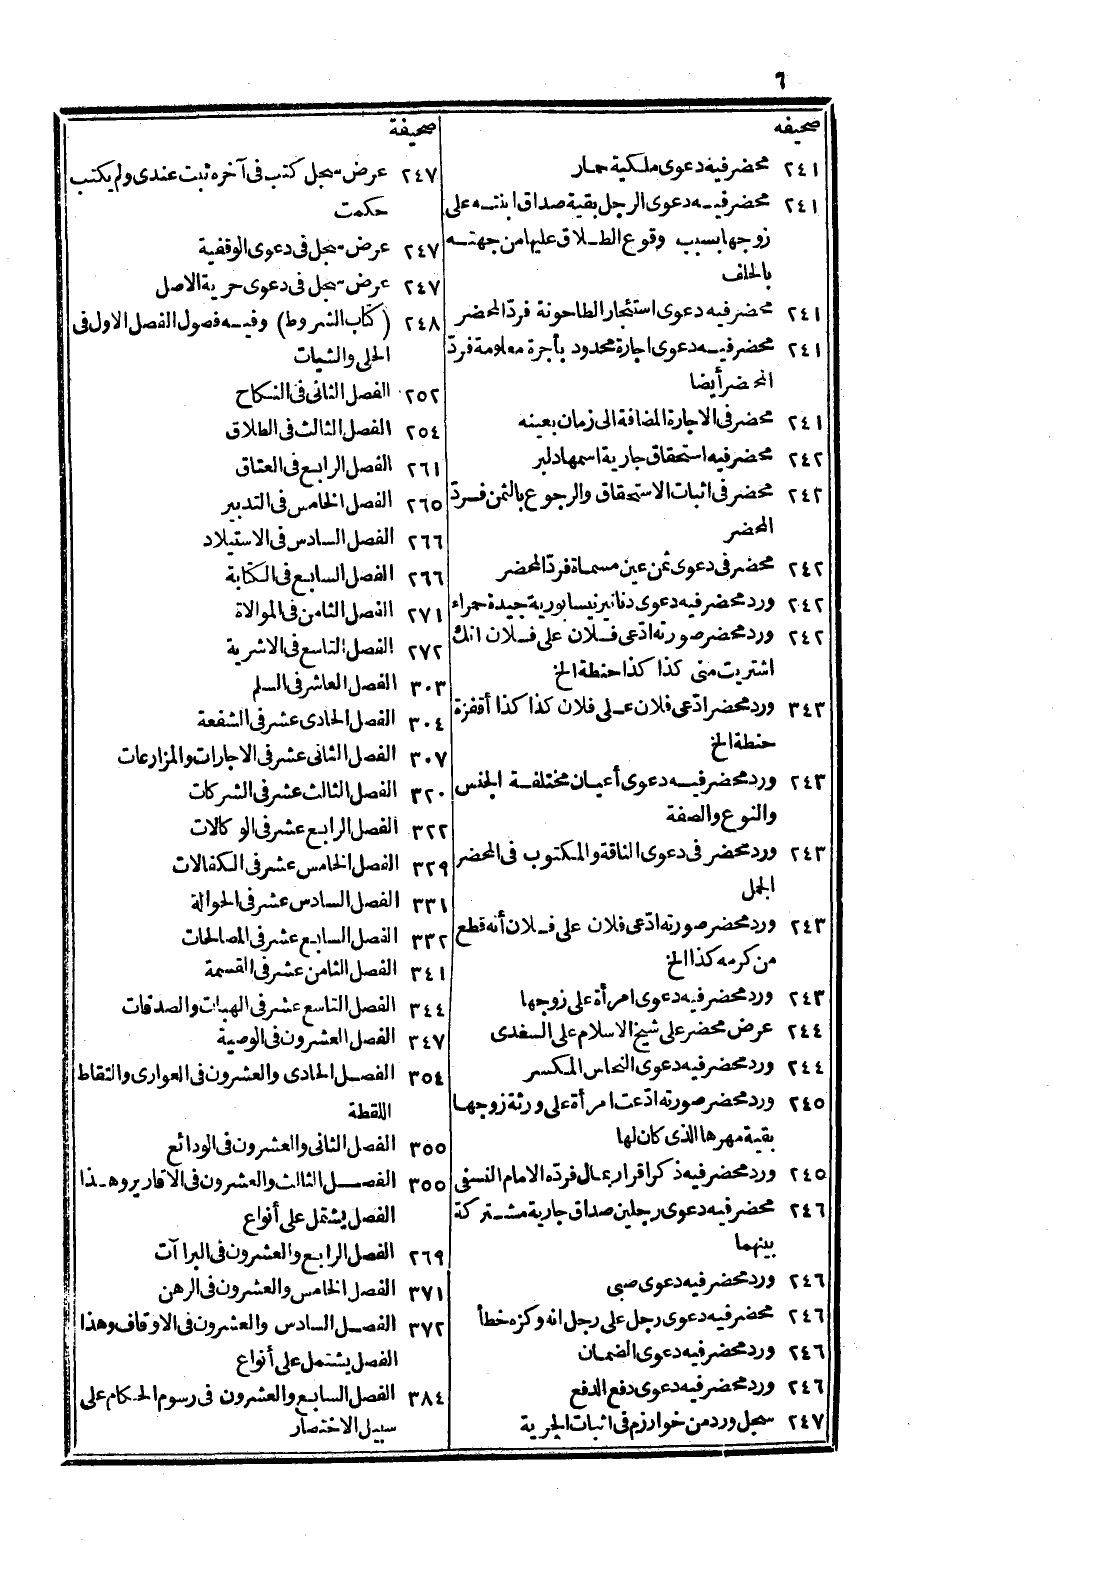 ٦
صحيفه
٢٤١ محضر فيه دعوى ملكية حمار
٢٤١ محضر فيه دعوى الرجل بقية صداق ابنته على
زوجها بسبب وقوع الطلاق عليها من جهته
بالحلف
٢٤١ محضر فيه دعوى استئجار الطاحونة فردّ المحضر
٢٤١ محضر فيه دعوى اجارة محدود بأجرة معلومة فردّ
المحضر أيضا
٢٤١ محضر فى الاجارة المضافة الى زمان بعينه
٢٤٢ محضر فيه استحقاق جارية اسمها دلبر
٢٤٢ محضر فى اثبات الاستحقاق والرجوع بالثمن فردّ
المحضر
٢٤٢ محضر فى دعوى ثمن عين مسماة فردّ المحضر
٢٤٢ ورد محضر فيه دعوى دنانير نيسابورية جيدة حمراء
٢٤٢ ورد محضر صورته ادّعى فلان على فلان انك
اشتريت منى كذا كذا حنطة الخ
٣٤٣ ورد محضر ادّعى فلان على فلان كذا كذا أقفزة
حنطة الخ
٢٤٣ ورد محضر فيه دعوى أعيان مختلفة الجنس
والنوع والصفة
٢٤٣ ورد محضر فى دعوى الناقة والمكتوب فى المحضر
الجمل
٢٤٣ ورد محضر صورته ادّعى فلان على فلان أنه قطع
من كرمه كذا الخ
٢٤٣ ورد محضر فيه دعوى امرأة على زوجها
٢٤٤ عرض محضر على شيخ الاسلام على السغدى
٢٤٤ ورد محضر فيه دعوى النحاس المكسر
٢٤٥ ورد محضر صورته ادّعت امرأة على ورثة زوجها
بقية مهرها الذى كان لها
٢٤٥ ورد محضر فيه ذكر اقرار بمال فردّه الامام النسفى
٢٤٦ محضر فيه دعوى رجلين صداق جارية مشتركة
بينهما
٢٤٦ ورد محضر فيه دعوى صبى
٢٤٦ محضر فيه دعوى رجل على رجل انه وكزه خطأ
٢٤٦ ورد محضر فيه دعوى الضمان
٢٤٦ ورد محضر فيه دعوى دفع الدفع
٢٤٧ سجل ورد من خوارزم فى اثبات الحرية
صحيفة
٢٤٧ عرض سجل كتب فى آخره ثبت عندى ولم يكتب
حكمت
٢٤٧ عرض سجل فى دعوى الوقفية
٢٤٧ عرض سجل فى دعوى حرية الاصل
٢٤٨ (كتاب الشروط) وفيه فصول الفصل الاول فى
الحلى والشيات
٢٥٢ الفصل الثانى فى النكاح
٢٥٤ الفصل الثالث فى الطلاق
٢٦١ الفصل الرابع فى العتاق
٢٦٥ الفصل الخامس فى التدبير
٢٦٦ الفصل السادس فى الاستيلاد
٢٦٦ الفصل السابع فى الكتابة
٢٧١ الفصل الثامن فى الموالاة
٢٧٢ الفصل التاسع فى الاشرية
٣٠٣ الفصل العاشر فى السلم
٣٠٤ الفصل الحادى عشر فى الشفعة
٣٠٧ الفصل الثانى عشر فى الاجارات والمزارعات
٣٢٠ الفصل الثالث عشر فى الشركات
٣٢٢ الفصل الرابع عشر فى الوكالات
٣٢٩ الفصل الخامس عشر فى الكفالات
٣٣١ الفصل السادس عشر فى الحوالة
٣٣٢ الفصل السابع عشر فى المصالحات
٣٤١ الفصل الثامن عشر فى القسمة
٣٤٤ الفصل التاسع عشر فى الهبات والصدقات
٣٤٧ الفصل العشرون فى الوصية
٣٥٤ الفصل الحادى والعشرون فى العوارى والتقاط
اللقطة
٣٥٥ الفصل الثانى والعشرون فى الودائع
٣٥٥ الفصل الثالث والعشرون فى الاقارير وهذا
الفصل يشتمل على أنواع
٢٦٩ الفصل الرابع والعشرون فى البراآت
٣٧١ الفصل الخامس والعشرون فى الرهن
٣٧٢ الفصل السادس والعشرون فى الاوقاف وهذا
الفصل يشتمل على أنواع
٣٨٤ الفصل السابع والعشرون فى رسوم الحكام على
سبيل الاختصار